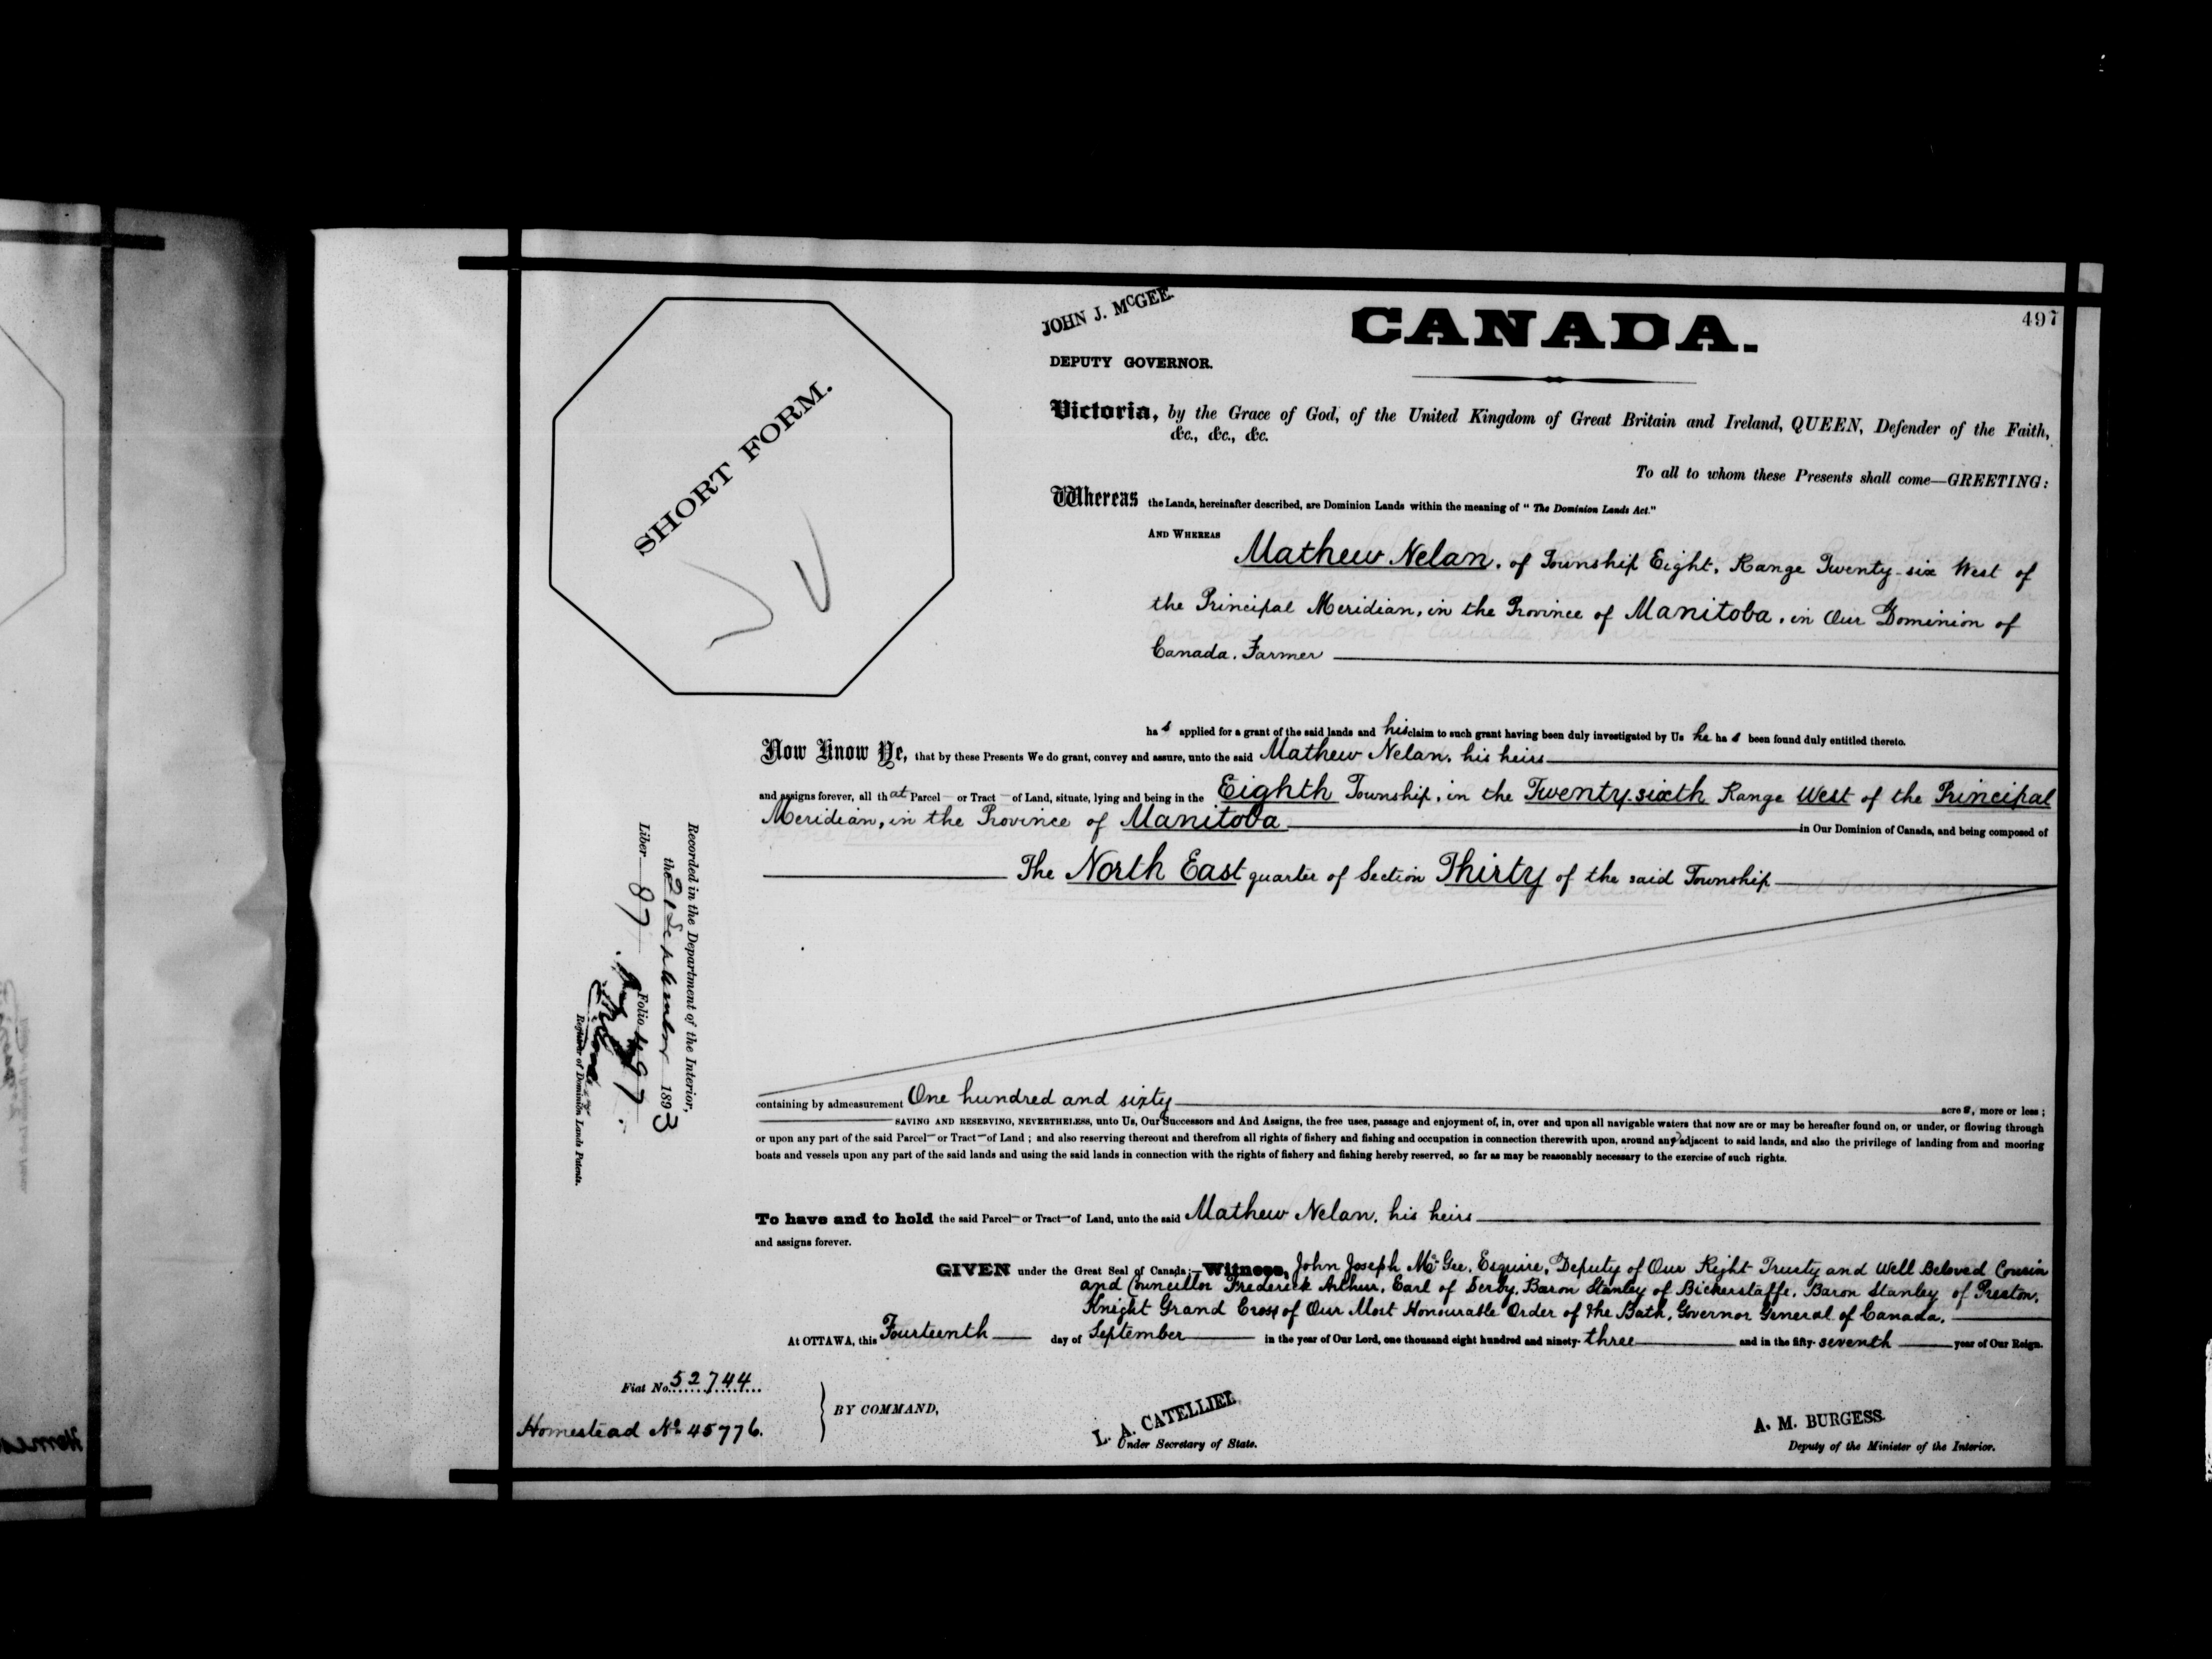 497
JOHN J. McGEE.
DEPUTY GOVERNOR.
CANADA.
SHORT FORM.
Victoria, by the Grace of God, of the United Kingdom of Great Britain and Ireland, QUEEN, Defender of the Faith,
&c., &c., &c.
To all to whom these Presents shall come—GREETING:
Whereas the Lands, hereinafter described, are Dominion Lands within the meaning of "The Dominion Lands Act."
AND WHEREAS
Mathew Nelan, of Township Eight, Range Twenty-six West of
the Principal Meridian, in the Province of Manitoba, in Our Dominion of
Canada, Farmer
has applied for a grant of the said lands and his claim to such grant having been duly investigated by Us he has been found duly entitled thereto.
Now Know Ye, that by these Presents We do grant, convey and assure, unto the said Mathew Nelan, his heirs
and assigns forever, all that Parcel or Tract of Land, situate, lying and being in the Eighth Township, in the Twenty-sixth Range West of the Principal
Meridian, in the Province of Manitoba in Our Dominion of Canada, and being composed of
The North East quarter of Section Thirty of the said Township
containing by admeasurement One hundred and sixty acres, more or less;
SAVING AND RESERVING, NEVERTHELESS, unto Us, Our Successors and And Assigns, the free uses, passage and enjoyment of, in, over and upon all navigable waters that now are or may be hereafter found on, or under, or flowing through
or upon any part of the said Parcel or Tract of Land; and also reserving thereout and therefrom all rights of fishery and fishing and occupation in connection therewith upon, around and adjacent to said lands, and also the privilege of landing from and mooring
boats and vessels upon any part of the said lands and using the said lands in connection with the rights of fishery and fishing hereby reserved, so far as may be reasonably necessary to the exercise of such rights.
To have and to hold the said Parcel or Tract of Land, unto the said Mathew Nelan, his heirs
and assigns forever.
GIVEN under the Great Seal of Canada:—Witness, John Joseph McGee, Esquire, Deputy of Our Right Trusty and Well Beloved Cousin
and Councillor Frederick Arthur, Earl of Derby, Baron Stanley of Bickerstaffe, Baron Stanley of Preston,
Knight Grand Cross of Our Most Honourable Order of the Bath, Governor General of Canada.
At OTTAWA, this Fourteenth day of September in the year of Our Lord, one thousand eight hundred and ninety-three and in the fifty-seventh year of Our Reign.
Fiat No. 52744
Homestead No. 45776.
BY COMMAND,
L. A. CATELLIER
Under Secretary of State.
A. M. BURGESS.
Deputy of the Minister of the Interior.
Recorded in the Department of the Interior,
the 21 September 1893
Liber 87 Folio 497.
Register of Dominion Lands Patents.